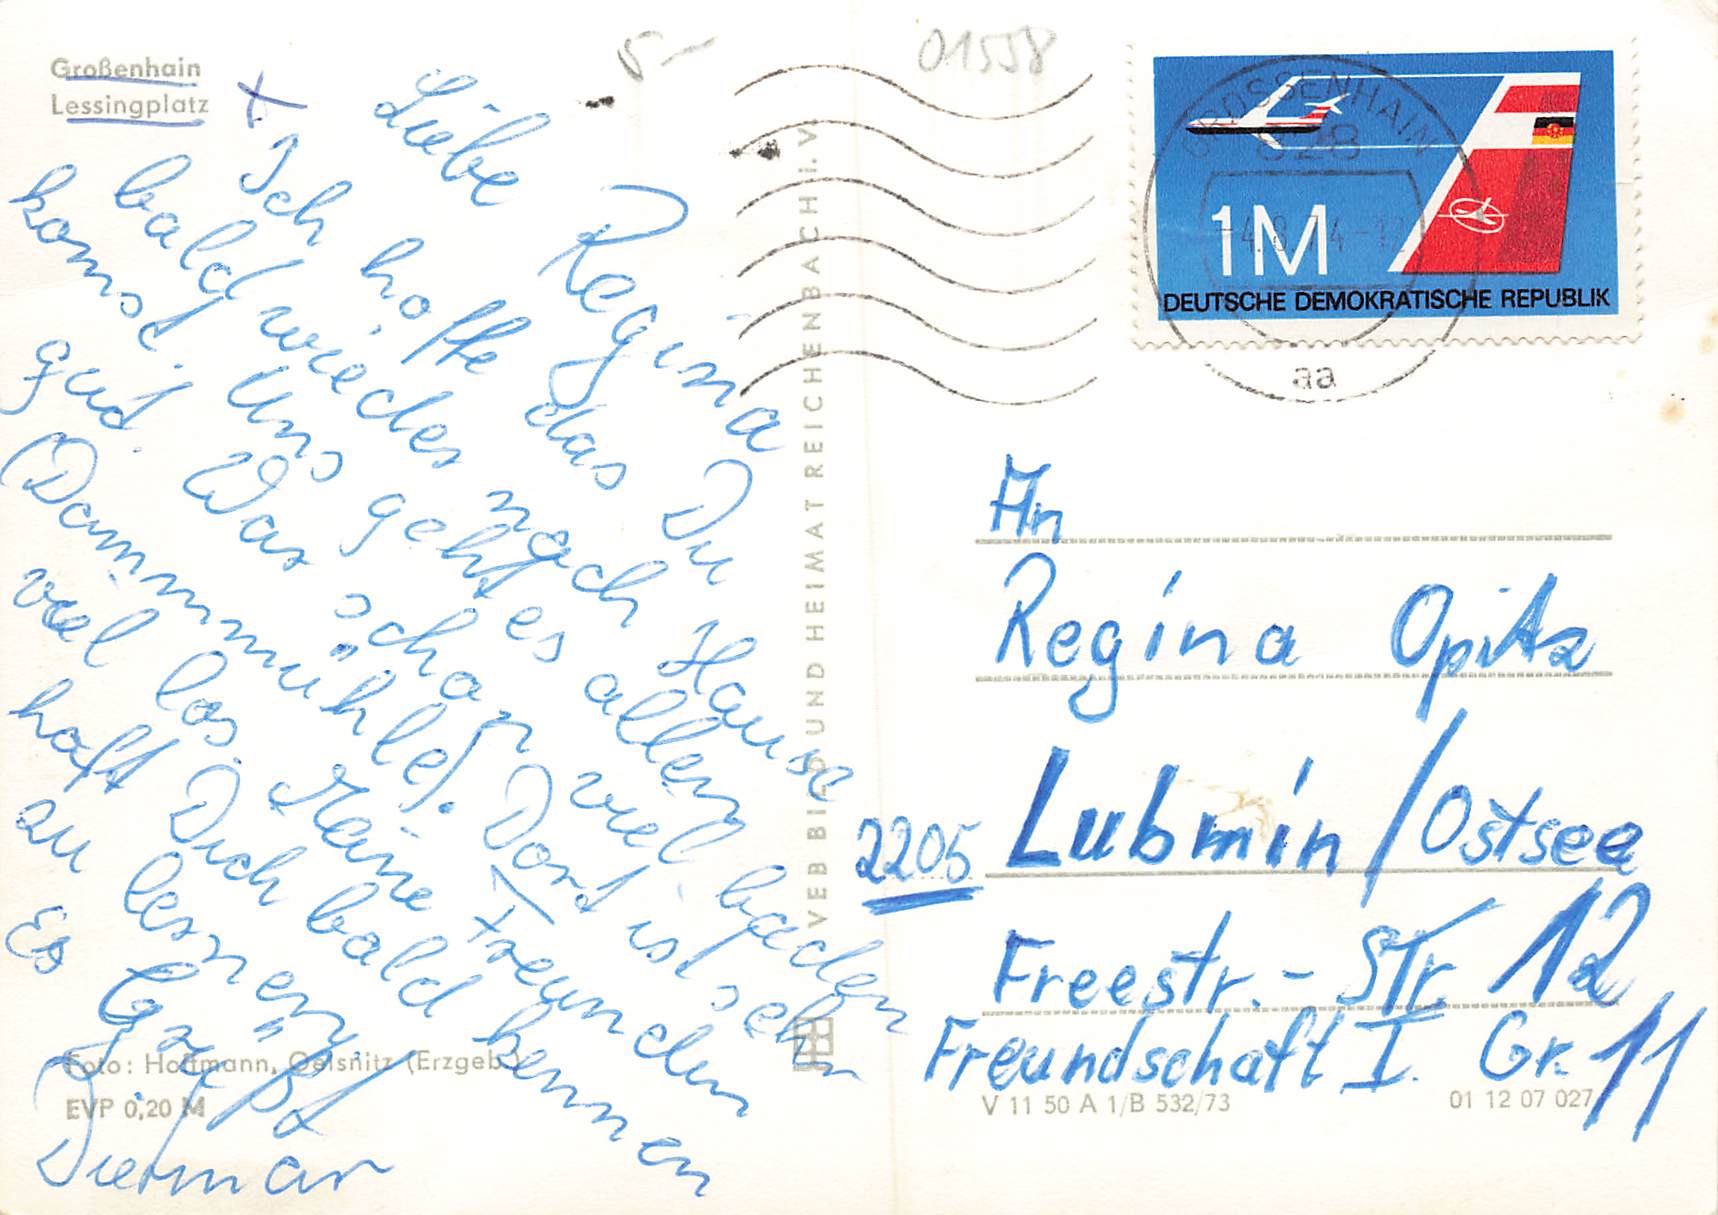 Großenhain
Lessingplatz
5-
01558
Liebe Regina
Ich hoffe das Du
bald wieder nach Hause
komst. Uns geht es allen
gut. War schon viel baden
(Dammmühle). Dort ist sehr
viel los. Meine Freunden
hoft Dich bald kennen
zu lernen.
Es Grüßt
Dietmar
Foto: Hoffmann, Oelsnitz (Erzgeb.)
EVP 0,20 M
VEB BILD UND HEIMAT REICHENBACH i. V.
GROSSENHAIN
828
aa
1M
DEUTSCHE DEMOKRATISCHE REPUBLIK
An
Regina Opitz
2205 Lubmin/Ostsee
Freestr.-Str. 12
Freundschaft I. Gr. 11
V 11 50 A 1/B 532/73
01 12 07 027